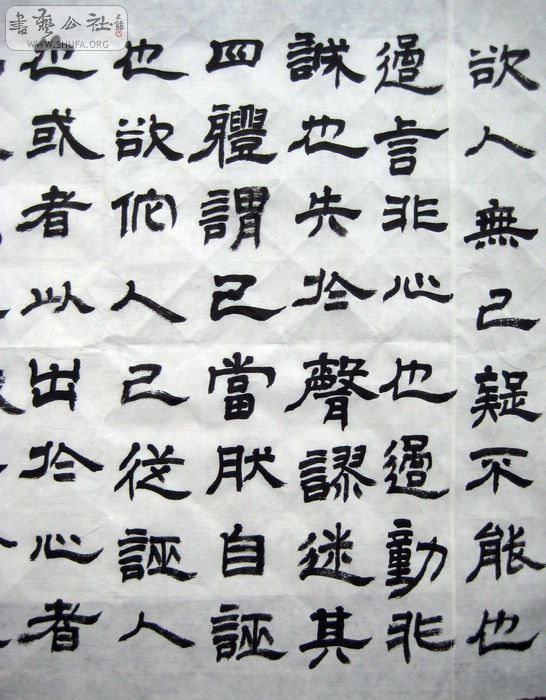 書藝公社
WWW.SHUFA.ORG
欲人無己疑不能也
過言非心也過動非
誠也失於聲謬迷其
四體謂己當肰自誣
也欲佗人己從誣人
也或者以出於心者